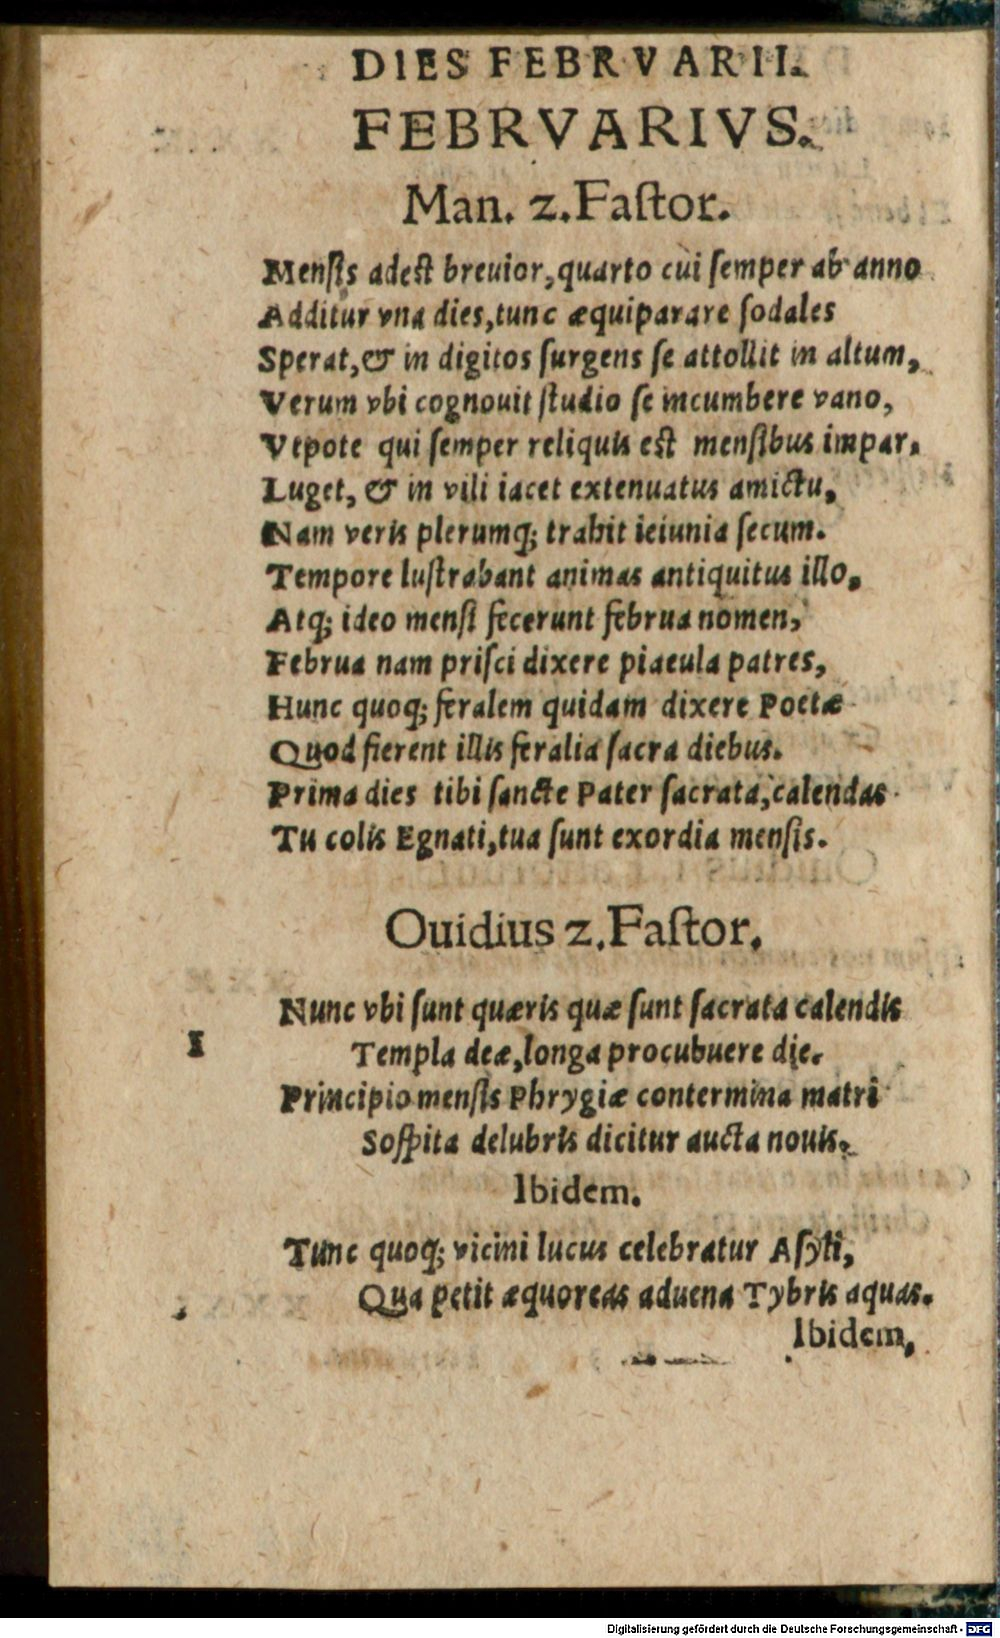 DIES FEBRVARII.
FEBRVARIVS.
Man. 2. Faſtor.
Menſis adeſt breuior, quarto cui ſemper ab anno
Additur vna dies, tunc æquiparare ſodales
Sperat, & in digitos ſurgens ſe attollit in altum,
Verum vbi cognouit ſtudio ſe incumbere vano,
Vtpote qui ſemper reliquis eſt menſibus impar,
Luget, & in vili iacet extenuatus amictu,
Nam veris plerumq; trahit ieiunia ſecum.
Tempore luſtrabant animas antiquitus illo,
Atq; ideo menſi fecerunt februa nomen,
Februa nam priſci dixere piacula patres,
Hunc quoq; feralem quidam dixere Poetæ
Quod fierent illis feralia ſacra diebus.
Prima dies tibi ſancte Pater ſacrata, calendas
Tu colis Egnati, tua ſunt exordia menſis.
Ouidius 2. Faſtor.
Nunc vbi ſunt quæris quæ ſunt ſacrata calendis
I Templa deæ, longa procubuere die.
Principio menſis Phrygiæ contermina matri
Soſpita delubris dicitur aucta nouis.
Ibidem.
Tunc quoq; vicini lucus celebratur Aſyli,
Qua petit æquoreas aduena Tybris aquas.
Ibidem,
Digitalisierung gefördert durch die Deutsche Forschungsgemeinschaft - DFG